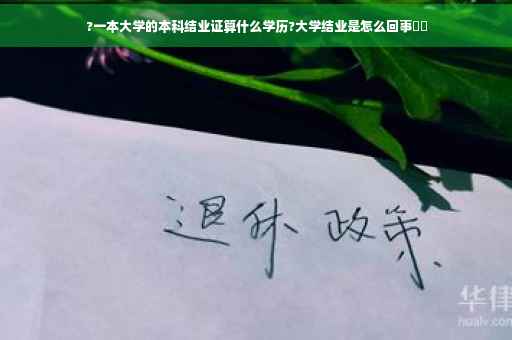 ?一本大学的本科结业证算什么学历?大学结业是怎么回事
退休 政策
华律
hualv.com